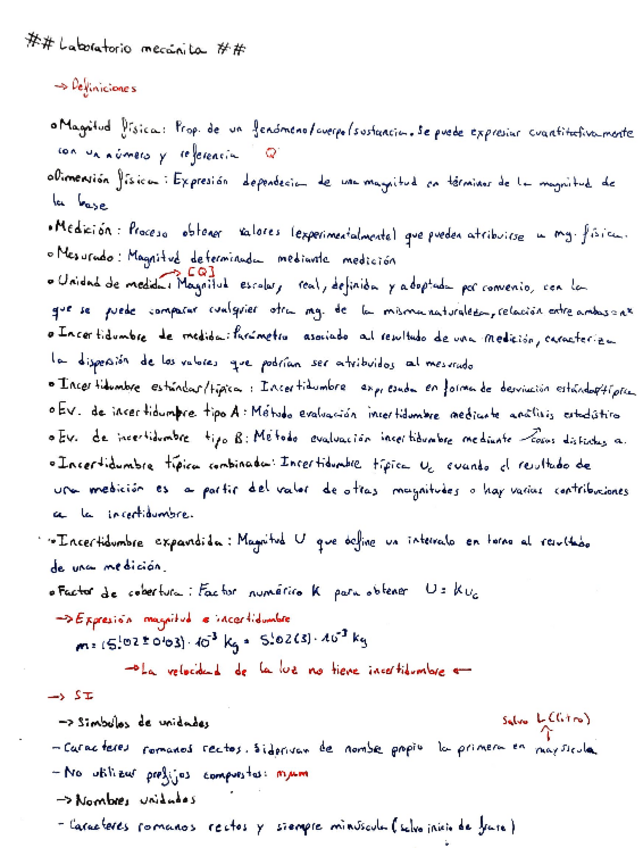 ## Laboratorio mecánica ##
→ Definiciones
• Magnitud física: Prop. de un fenómeno/cuerpo/sustancia. Se puede expresar cuantitativamente
con un número y referencia Q
• Dimensión física: Expresión dependecia de una magnitud en términos de la magnitud de
la base
• Medición: Proceso obtener valores (experimentalmente) que pueden atribuirse a mg. física.
• Mesurado: Magnitud determinada mediante medición
[Q]
• Unidad de medida: Magnitud escalar, real, definida y adoptada por convenio, con la
que se puede comparar cualquier otra mg. de la misma naturaleza, relación entre ambas = nº
• Incertidumbre de medida: Parámetro asociado al resultado de una medición, caracteriza
la dispersión de los valores que podrían ser atribuidos al mesurado
• Incertidumbre estándar/típica: Incertidumbre expresada en forma de desviación estándar/típica
• Ev. de incertidumbre tipo A: Método evaluación incertidumbre mediante análisis estadístico
• Ev. de incertidumbre tipo B: Método evaluación incertidumbre mediante cosas distintas a.
• Incertidumbre típica combinada: Incertidumbre típica uc cuando el resultado de
una medición es a partir del valor de otras magnitudes o hay varias contribuciones
a la incertidumbre.
• Incertidumbre expandida: Magnitud U que define un intervalo en torno al resultado
de una medición.
• Factor de cobertura: Factor numérico K para obtener U = Kuc
→ Expresión magnitud e incertidumbre
m = (5'02 ± 0'03)·10⁻³ Kg = 5'02(3)·10⁻³ Kg
→ La velocidad de la luz no tiene incertidumbre ←
→ SI
→ Símbolos de unidades
salvo L (litro)
- Caracteres romanos rectos. Si derivan de nombre propio la primera en mayúscula
- No utilizar prefijos compuestos: mµm
→ Nombres unidades
- Caracteres romanos rectos y siempre minúscula (salvo inicio de frase)